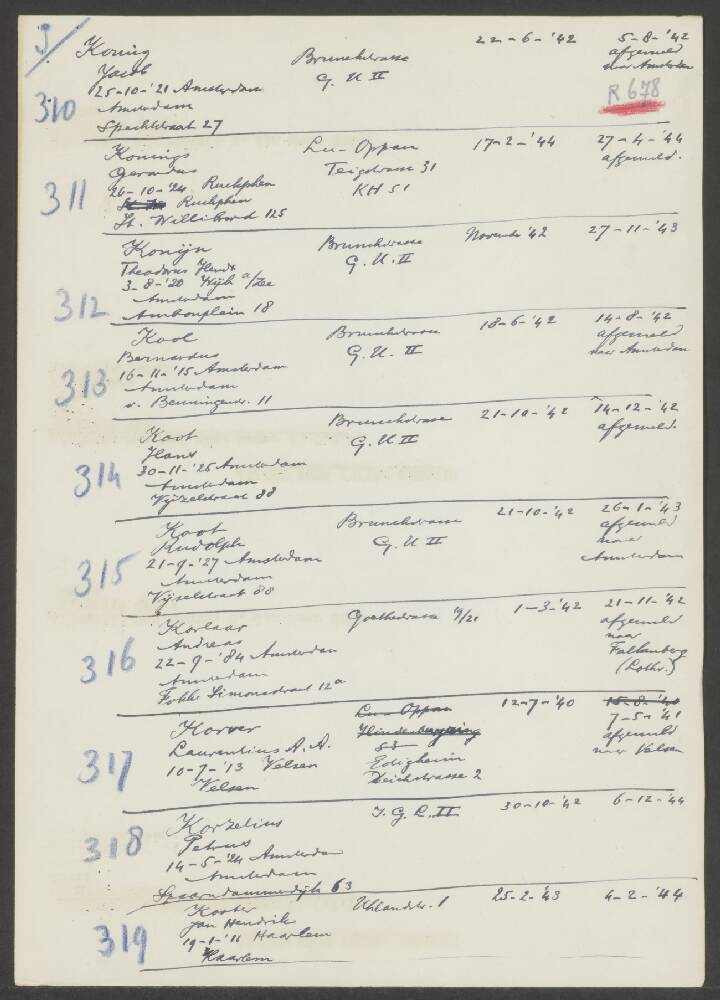 5/
310
Koning Brunckstrasse 22-6-'42 5-8-'42
Jacob G. U II afgemeld
25-10-'21 Amsterdam naar Amsterdam
Amsterdam R 678
Spechtstraat 27
311
Konings Lu-Oppau 17-2-'44 27-4-'44
Gerardus Teigstrasse 31 afgemeld.
26-10-'24 Rucphen KH 51
Rucphen
St. Willibrord 125
312
Konijn Brunckstrasse November '42 27-11-'43
Theodorus Hendr G. U. II
3-8-'20 Wijk a/Zee
Amsterdam
Ambonplein 18
313
Kool Brunckstrasse 18-6-'42 14-8-'42
Bernardus G. U. II afgemeld
16-11-'15 Amsterdam naar Amsterdam
Amsterdam
v. Beuningenstr. 11
314
Koot Brunckstrasse 21-10-'42 14-12-'42
Hans G. U II afgemeld.
30-11-'25 Amsterdam
Amsterdam
Vijzelstraat 88
315
Koot Brunckstrasse 21-10-'42 26-1-'43
Rudolph G. U II afgemeld
21-9-'27 Amsterdam naar
Amsterdam Amsterdam
Vijzelstraat 88
316
Korlaar Goethestrasse 19/21 1-3-'42 21-11-'42
Andreas afgemeld
22-9-'84 Amsterdam naar
Amsterdam Falkenberg
Fokke Simonszstraat 12a (Lothr.)
317
Korver Lu-Oppau 12-7-'40 15-8-'40
Laurentius A. A. 7-5-'41
10-7-'13 Velsen Edigheim afgemeld
Velsen Deichstrasse 2 naar Velsen
318
Korzelius I. G. L. II 30-10-'42 6-12-'44
Petrus
14-5-'24 Amsterdam
Amsterdam
Spaarndammerdijk 63
319
Koster Uhlandstr. 1 25-2-'43 4-2-'44
Jan Hendrik
19-1-'11 Haarlem
Haarlem